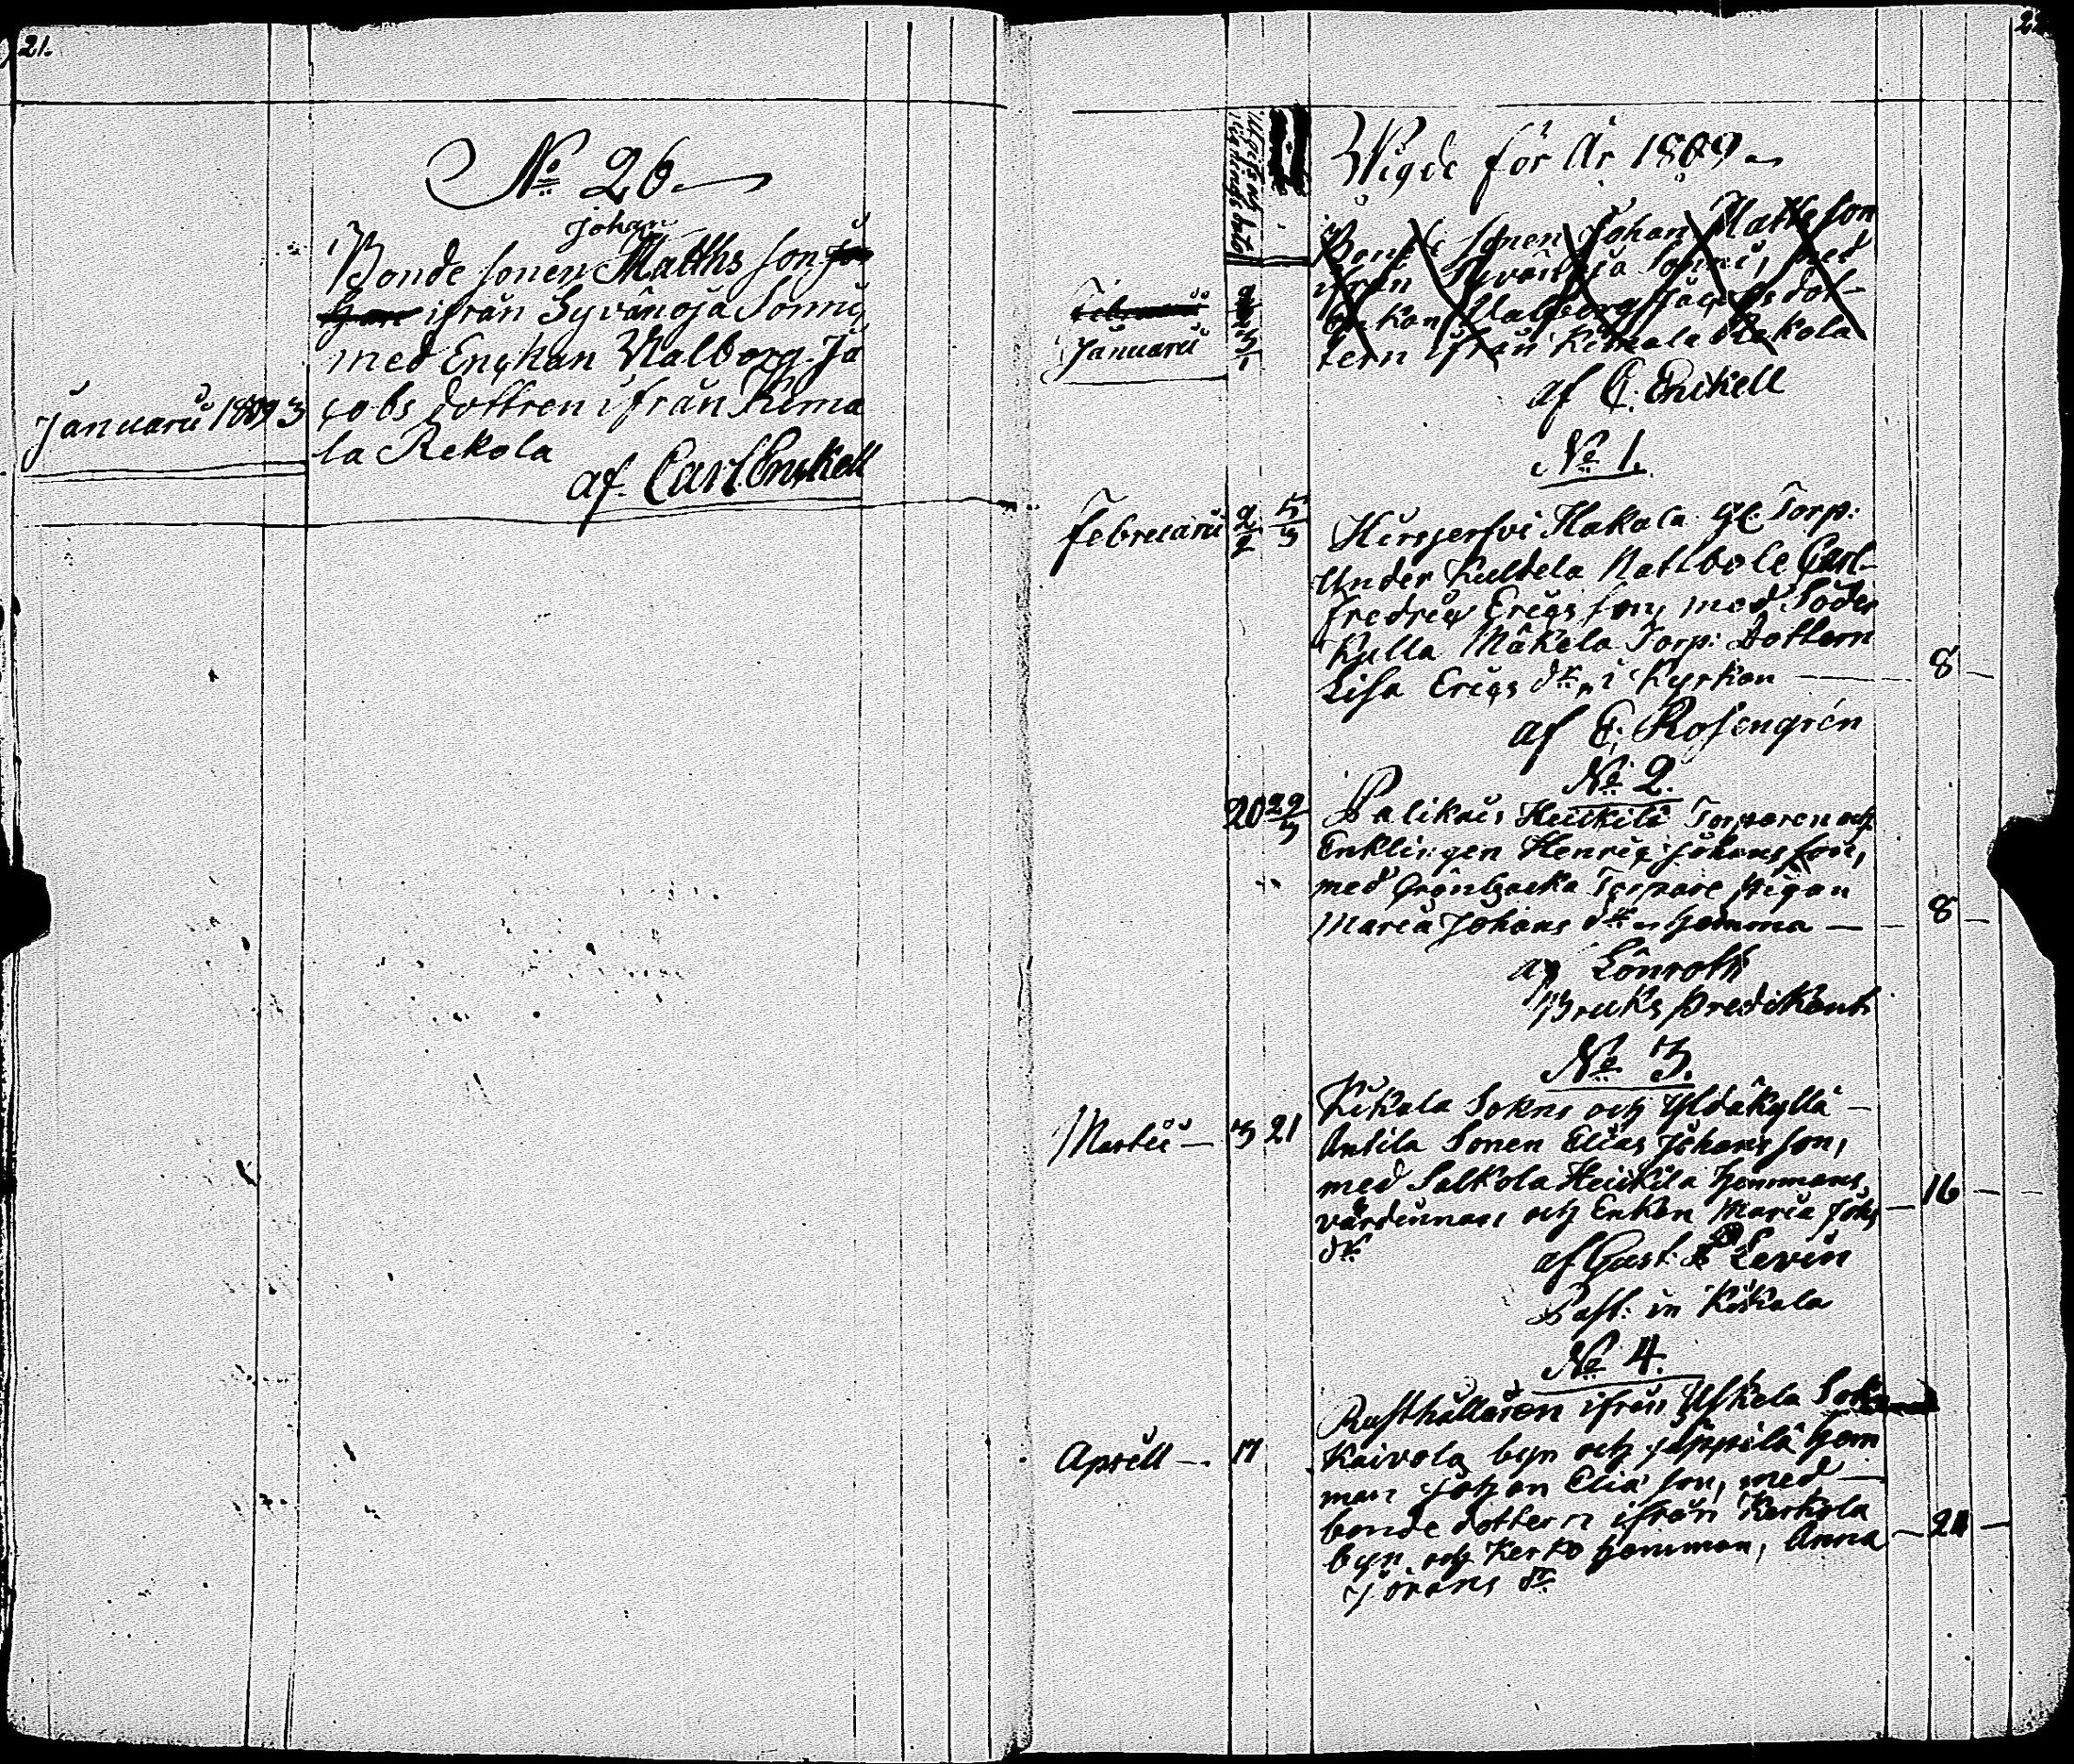 21.
No 26
Johan
Bonde sonen Matths son
ifrån Syvänoja Sonni,
med Enckan Valborg Ja
Januarii 1809 3 cobs dottren ifrån Kima
la Rekola
af. Carl Enckell
22
Wigde för År 1809
Bonde sonen Johan Matts son
ifrån Syvänoja Sonni, med
Enkan Valborg Jacobs dot-
Januarii
tern ifrån Kimala Rekola
af C. Enckell
No 1.
Februarii 2/2 5/3 Hirsjerfvi Hakala Torp:
Under Kultela Ratlbole Carl
Fredric Erics son, med Söder
Kulla Mäkelä Torp: Dottern
Lisa Erics dr, i Kyrkan — 8 —
af E. Rosengrén
No 2.
20 22/3 Palikais Heickilä Torparen och
Enklingen Henric Johans son,
med Grönbacka Torpare Pigan
Maria Johans dr hemma — 8 —
af Lönroth
Bruks Predikant
No 3.
Kikala Sokns och Yldäkyllä —
Martii — 3 21 Antila Sonen Elias Johans son,
med Salkola Heickilä Hemmans,
värdinnan och Enkan Maria Johs — 16 —
dr
af Gust. Levin
Past: in Kikala
No 4.
Rusthållaren ifrån Uskela Sokn
Aprill — 17 Kaivola byn och Jäppilä hem
man Johan Elia son, med —
bonde dottern ifrån Kerkola
byn och Kerko hemman, Anna — 24 —
Jörans dr